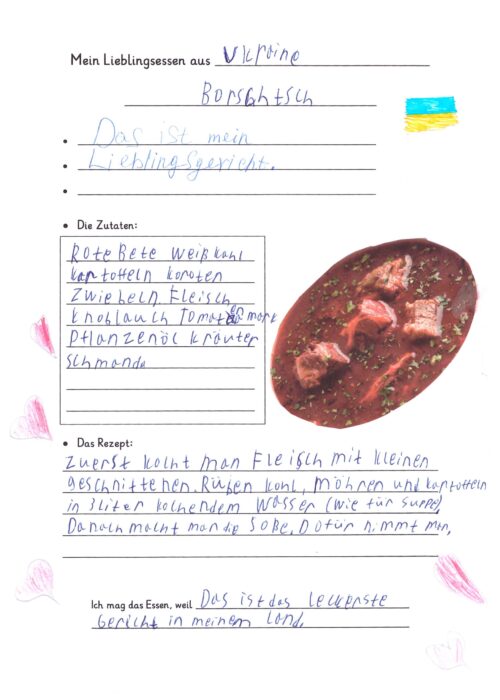 Mein Lieblingsessen aus Ukraine
Borschtsch
• Das ist mein
• Lieblingsgericht.
•
• Die Zutaten:
Rote Bete Weißkohl
kartoffeln karoten
Zwiebeln Fleisch
knoblauch Tomatenmark
Pflanzenöl kräuter
schmand
• Das Rezept:
Zuerst kocht man Fleisch mit kleinen
geschnittenen. Rüben kohl, möhren und kartoffeln
in 3 liter kochendem Wasser (wie für suppe).
Danach macht man die Soße. Dafür nimmt man.
Ich mag das Essen, weil Das ist das leckerste
Gericht in meinem Land.